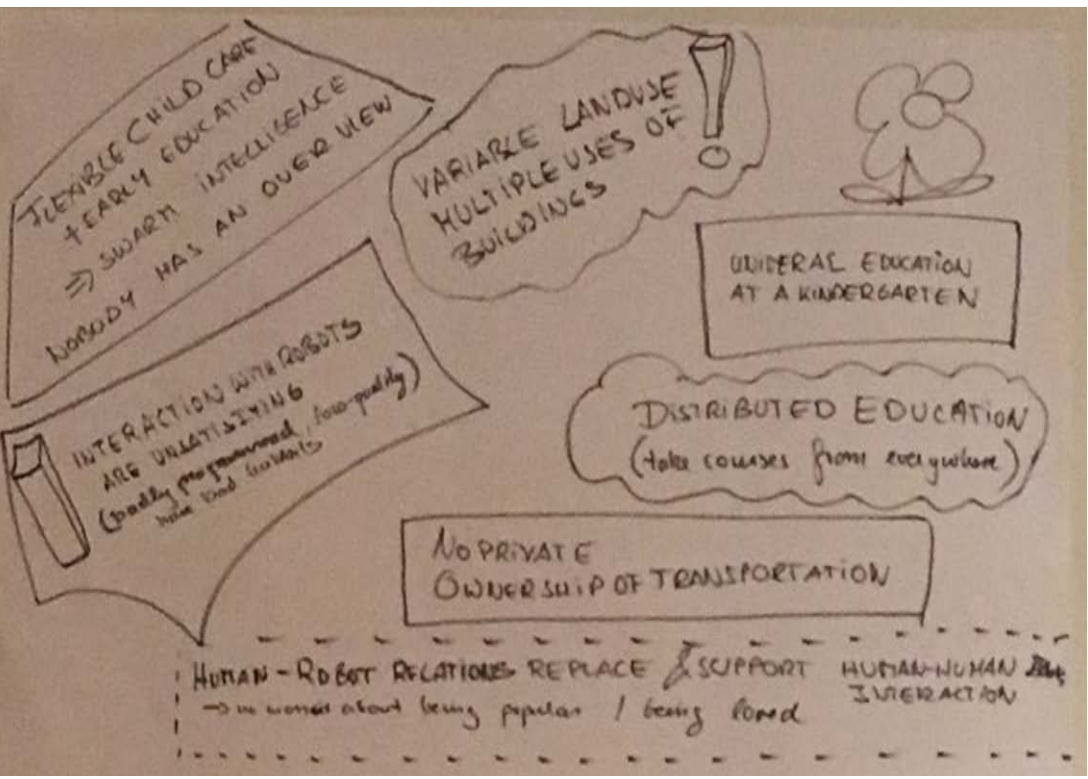 FLEXIBLE CHILD CARE
+ EARLY EDUCATION
⇒ SWARM INTELLIGENCE
NOBODY HAS AN OVERVIEW
VARIABLE LANDUSE
MULTIPLE USES OF
BUILDINGS
!
EDUCATION
AT A KINDERGARTEN
INTERACTION WITH ROBOTS
ARE UNSATISIYING
(badly programmed, low-quality)
DISTRIBUTED EDUCATION
(take courses from everywhere)
NO PRIVATE
OWNERSHIP OF TRANSPORTATION
HUMAN-ROBOT RELATIONS REPLACE & SUPPORT HUMAN-HUMAN
INTERACTION
→ no worries about being popular / being loved